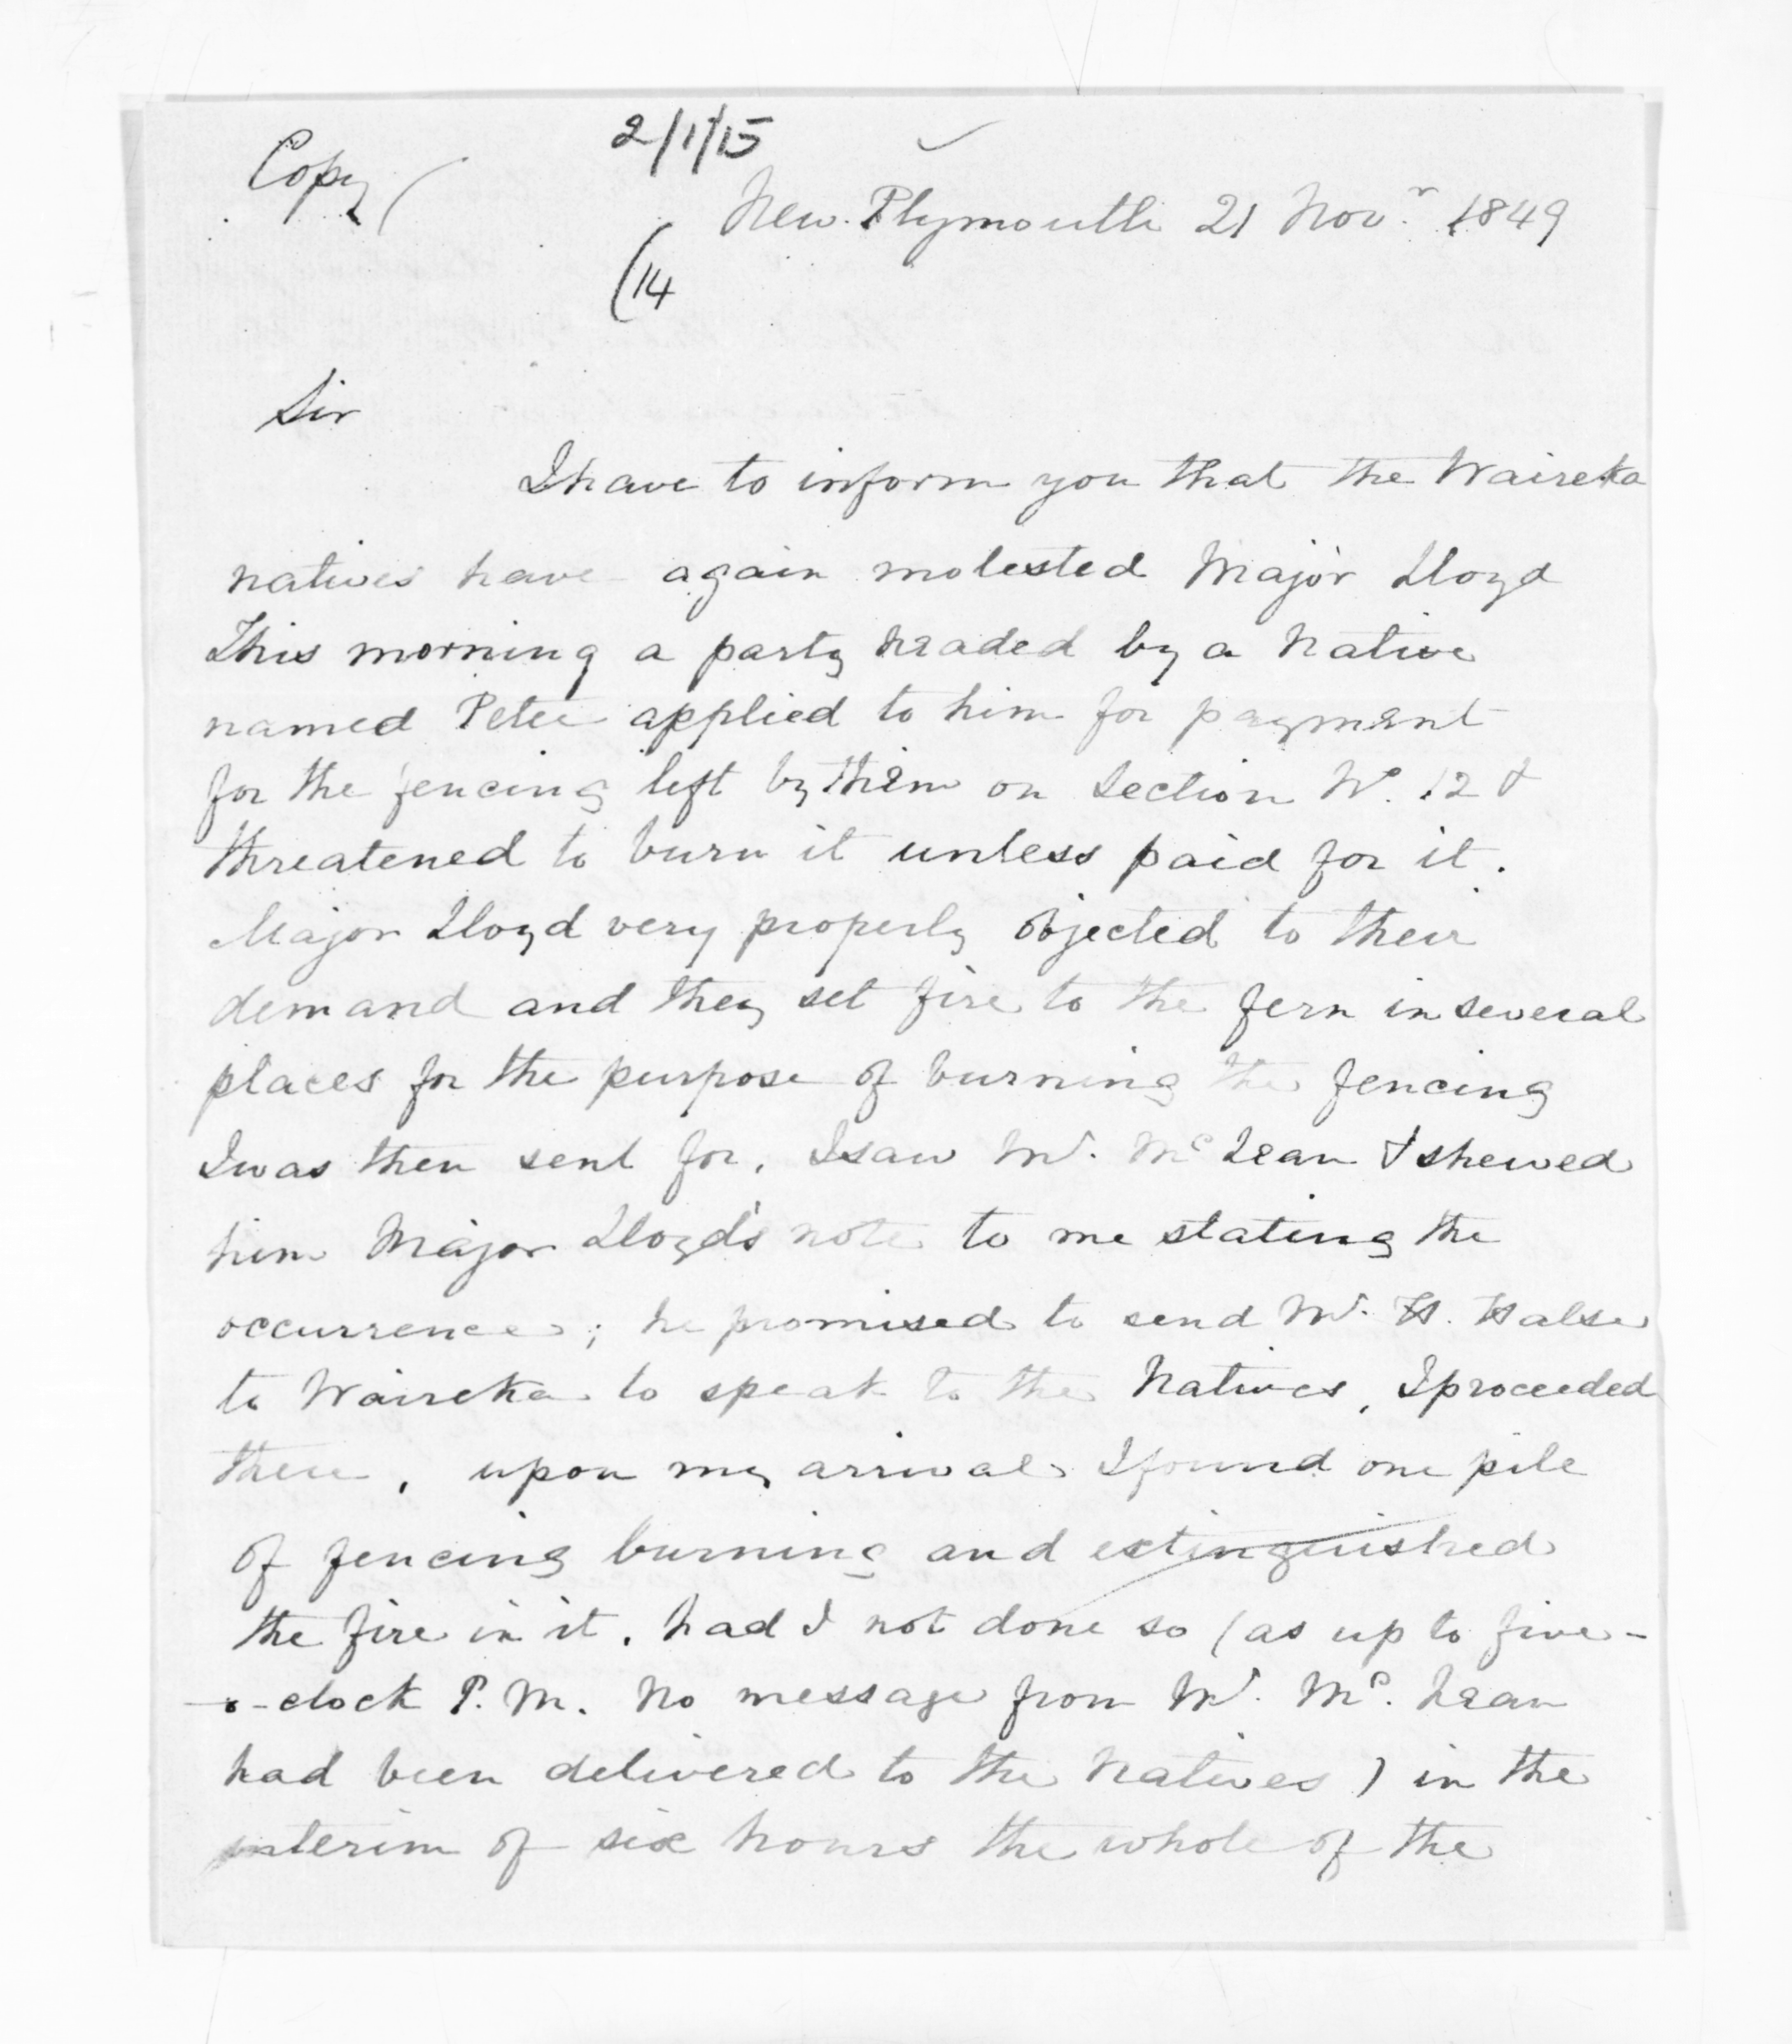 Copy (
2/1/15
New Plymouth 21 Novr. 1849
(14
Sir
I have to inform you that the Waireka
natives have again molested Major Lloyd
This morning a party headed by a Native
named Peter applied to him for payment
for the fencing left by them on Section No. 12 &
threatened to burn it unless paid for it.
Major Lloyd very properly objected to their
demand and they set fire to the fern in several
places for the purpose of burning the fencing
I was then sent for. I saw Mr. McLean & shewed
him Major Lloyd's note to me stating the
occurrence; he promised to send Mr. H. Halse
to Waireka to speak to the Natives, I proceeded
there, upon my arrival I found one pile
of fencing burning and extinguished
the fire in it. had I not done so (as up to five-
-o-clock P.M. No message from Mr. Mc. Lean
had been delivered to the Natives) in the
interim of six hours the whole of the